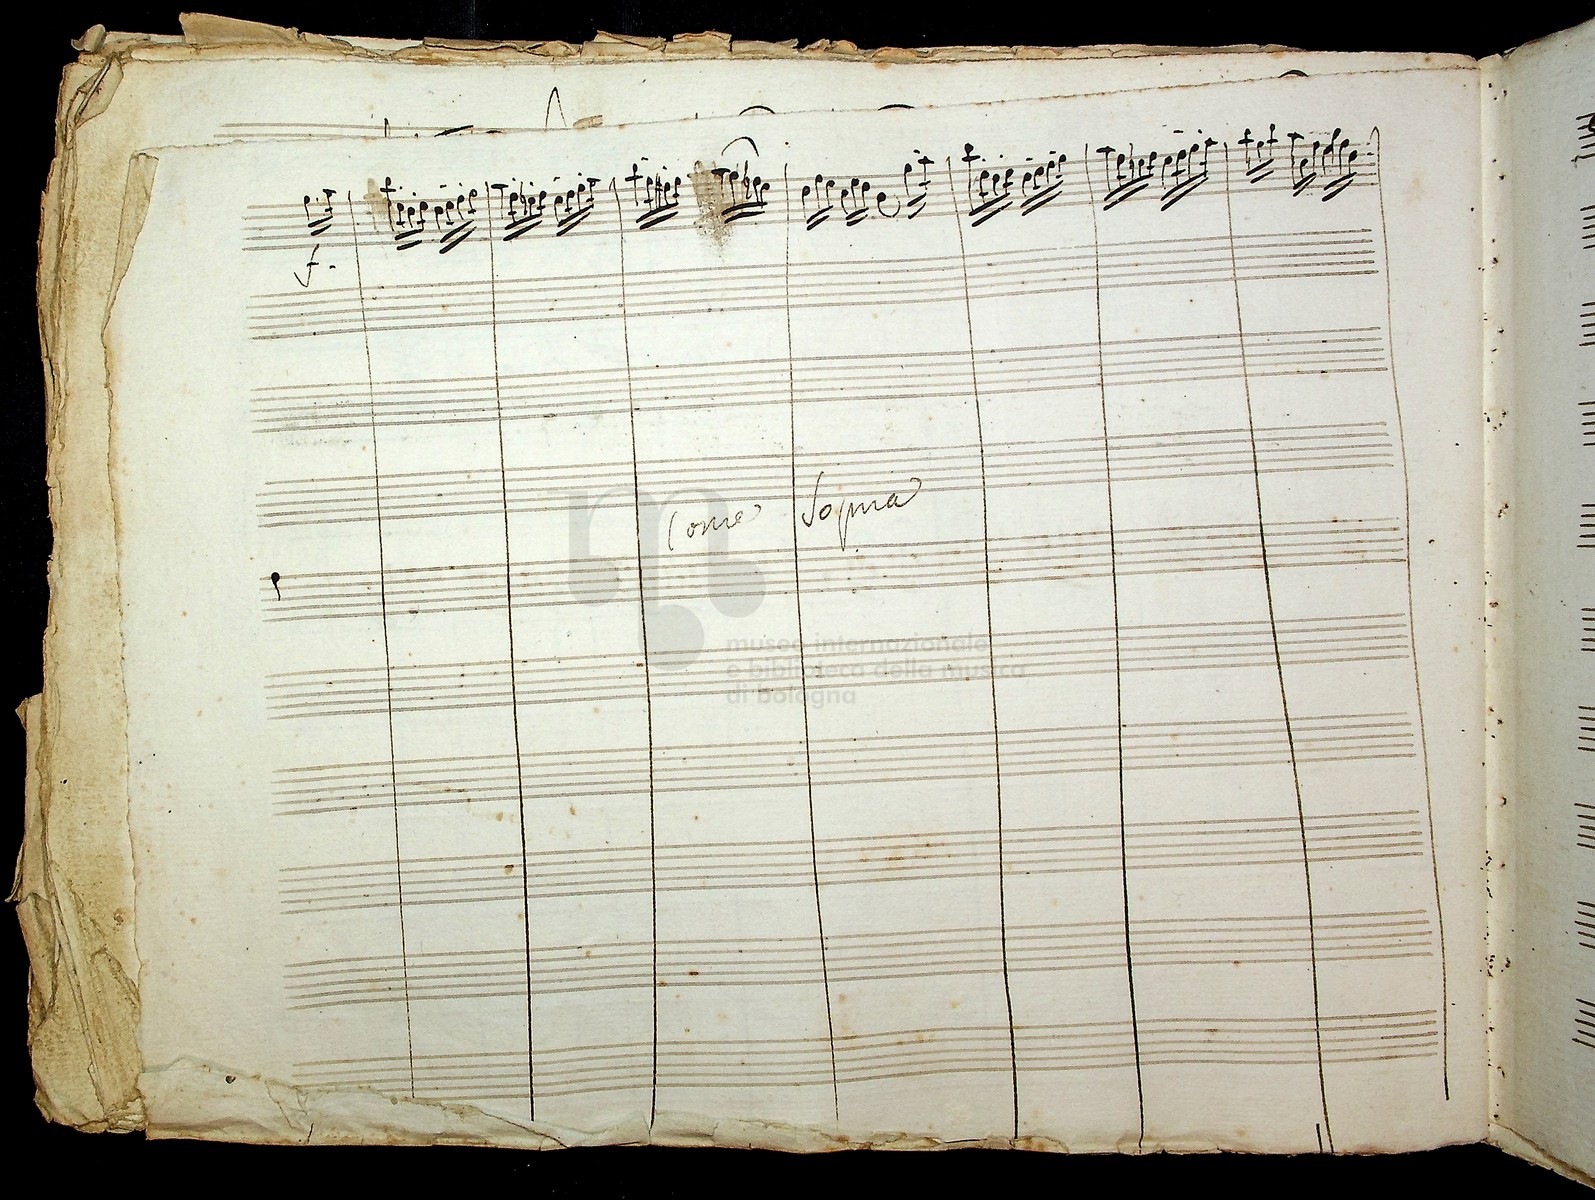 f.
Come Sopra
museo internazionale
e biblioteca della musica
di bologna